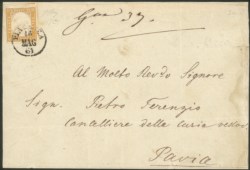 15
MAG
61
Al Molto Revdo Signore
Sign. Pietro Terenzio
Cancelliere della curia vesco
Pavia